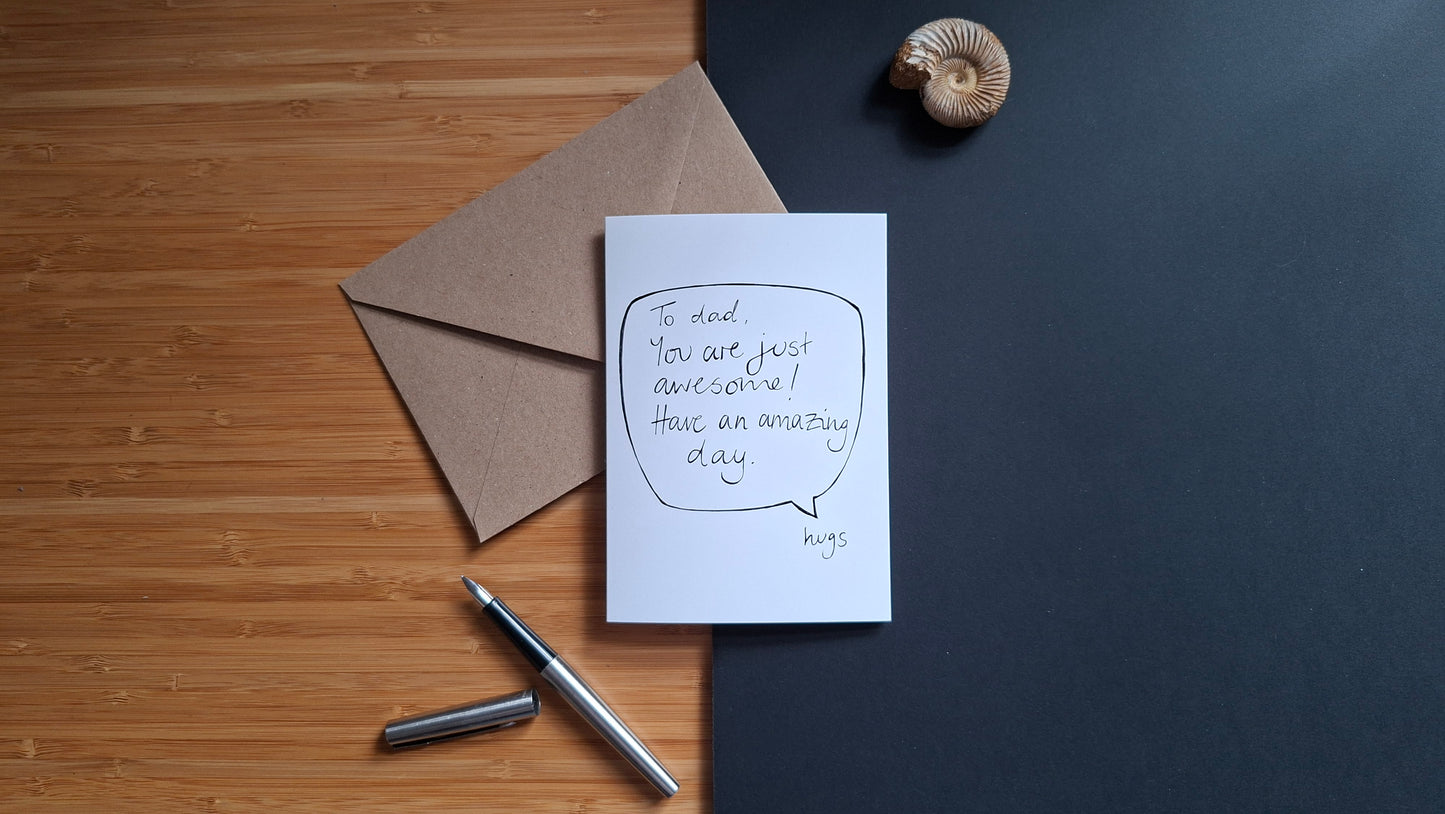 To dad,
You are just
awesome!
Have an amazing
day.
hugs